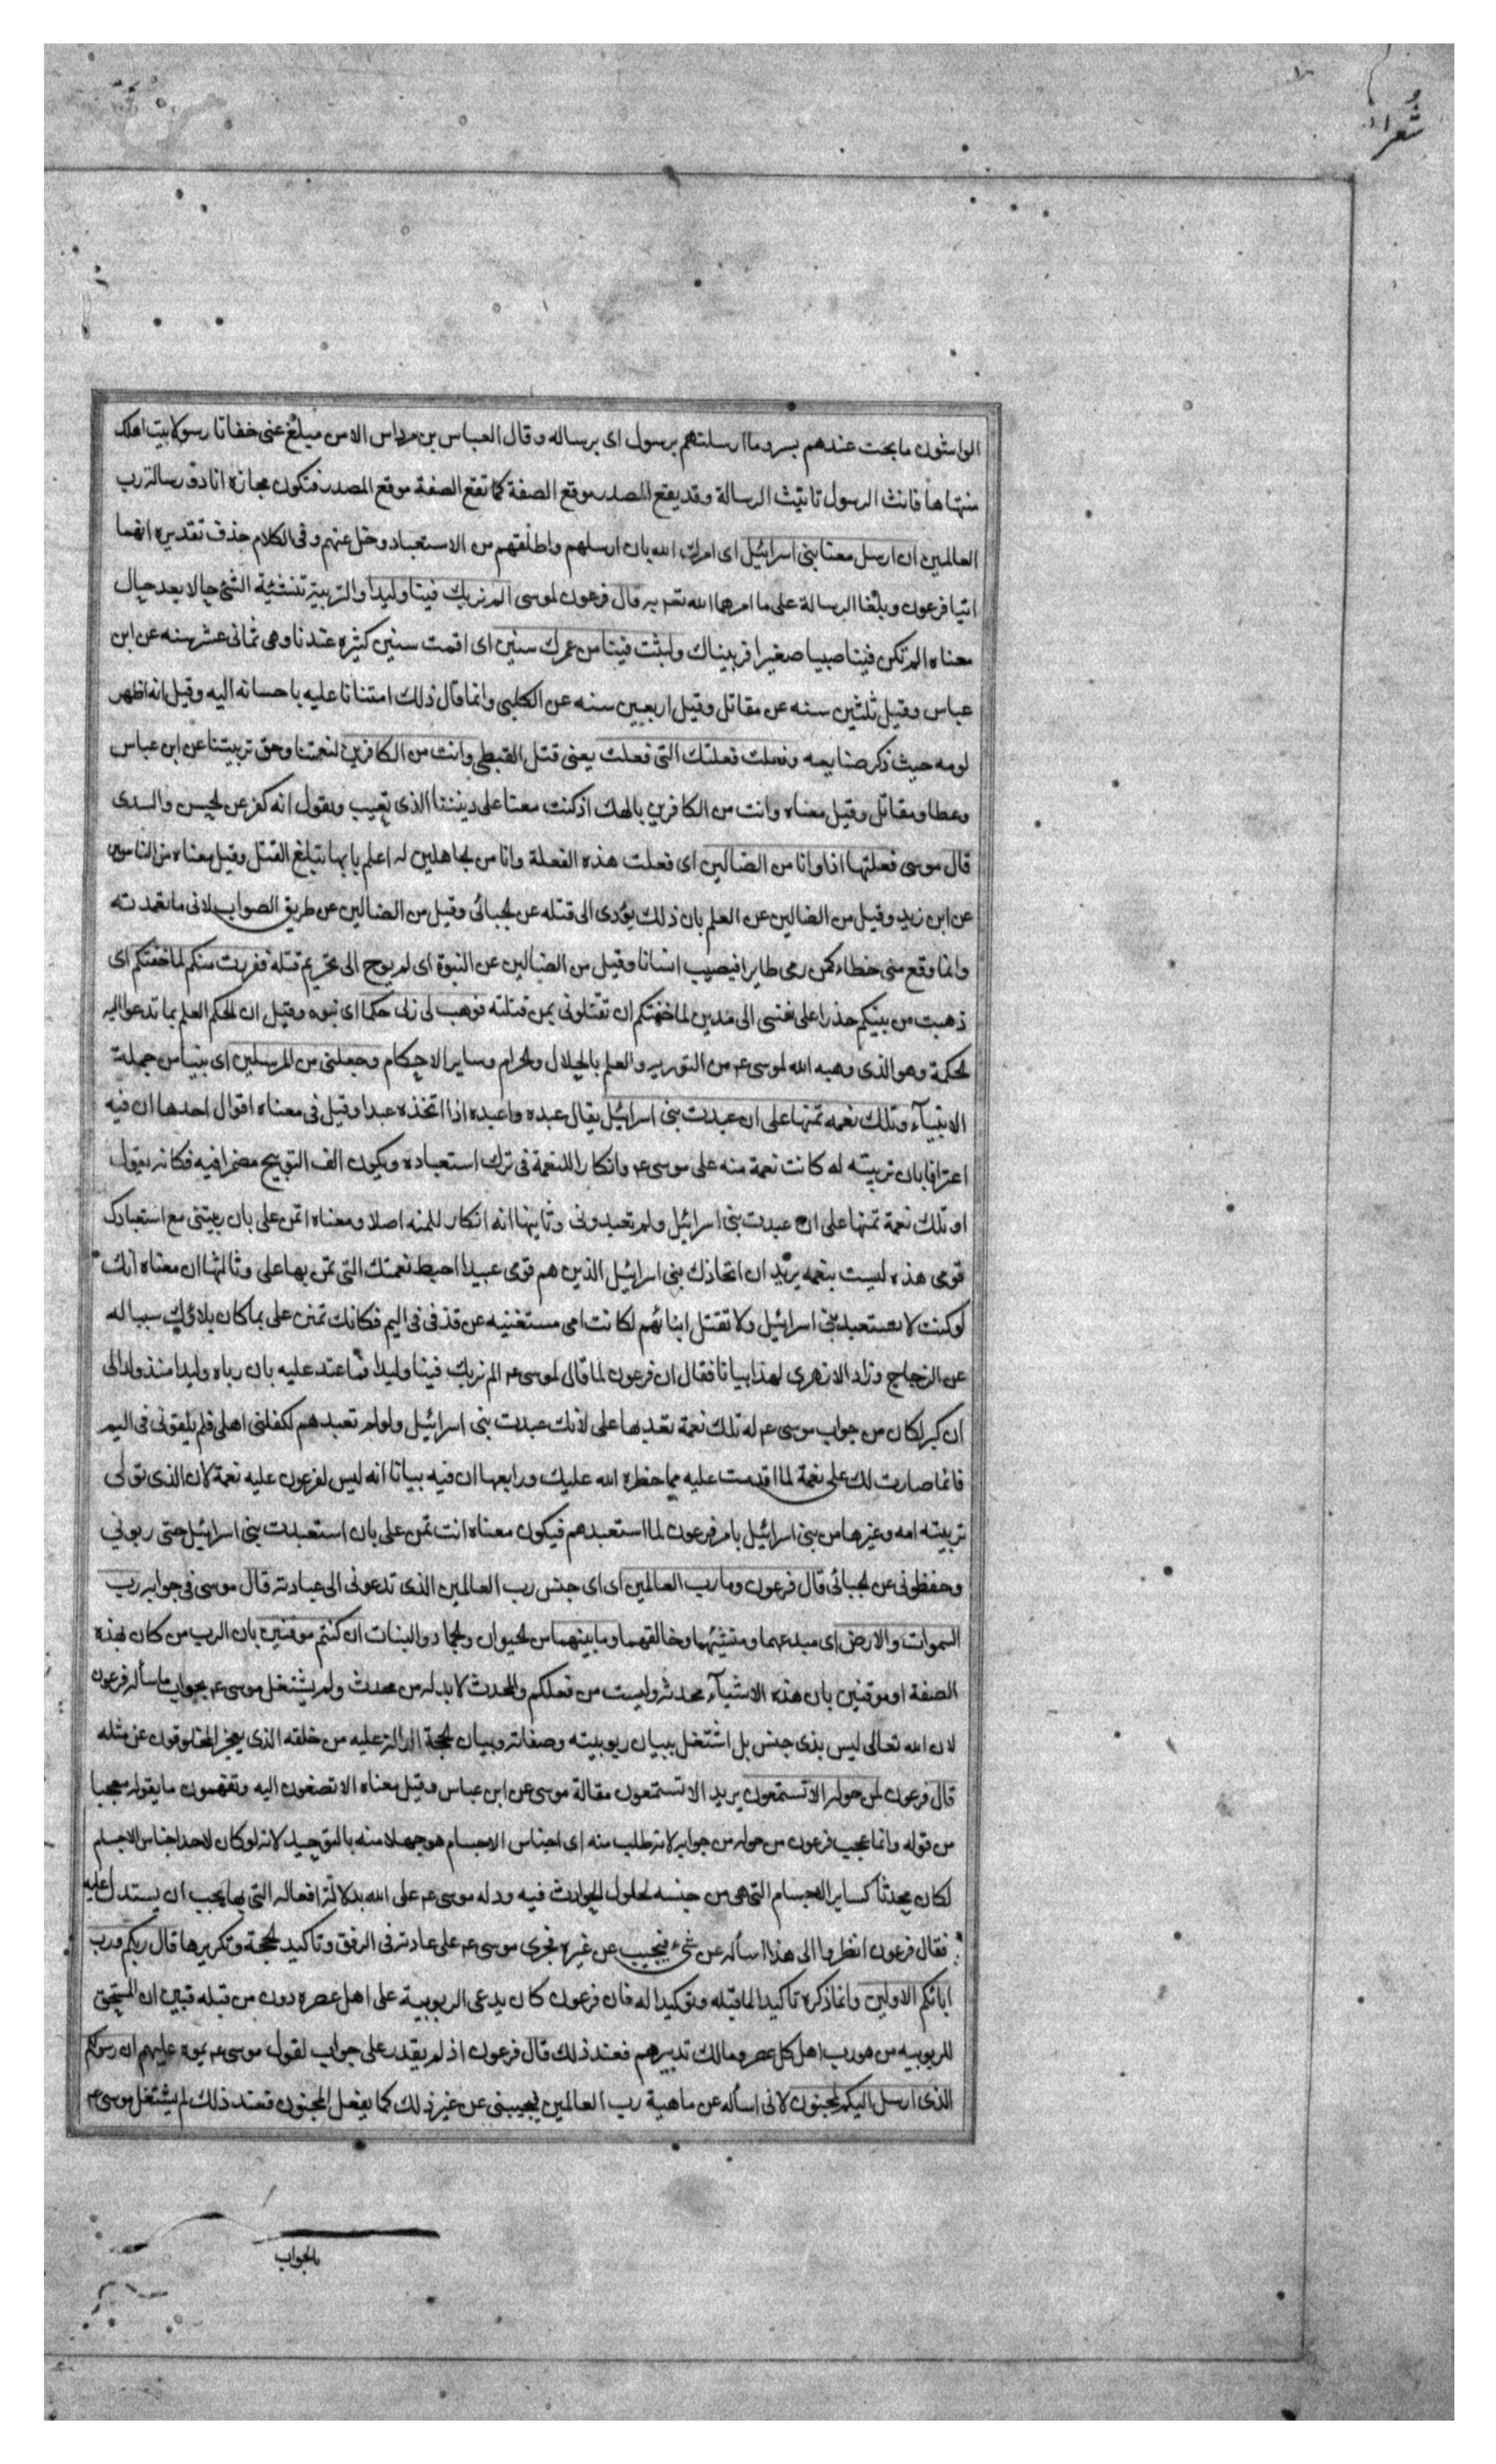 شعراء
الواشون ما بحت عندهم بسر وما ارسلتهم برسول اى برساله وقال العباس بن مرداس الا من مبلغ عنى خفافا رسولا بيت اهلك
منتهاها فانث الرسول تانيث الرسالة وقد يقع المصدر موقع الصفة كما تقع الصفة موقع المصدر فتكون مجازه انا ذو رسالة رب
العالمين ان ارسل معنا بنى اسرائيل اى امرك الله بان ارسلهم واطلقهم من الاستعباد وخل عنهم وفى الكلام حذف تقديره انهما
اتيا فرعون وبلغا الرسالة على ما امرهما الله تعالى به قال فرعون لموسى الم نربك فينا وليدا والتربية تنشئة الشئ حالا بعد حال
معناه الم تكن فينا صبيا صغيرا فربيناك ولبثت فينا من عمرك سنين اى اقمت سنين كثيره عندنا وهى ثمانى عشر سنه عن ابن
عباس وقيل ثلثين سنه عن مقاتل وقيل اربعين سنه عن الكلبى وانما قال ذلك امتنانا عليه باحسانه اليه وقيل انه اظهر
لومه حيث ذكر صنايعه وفعلت فعلتك التى فعلت يعنى قتل القبطى وانت من الكافرين لنعمتنا وحق تربيتنا عن ابن عباس
وعطا ومقاتل وقيل معناه وانت من الكافرين بالهك اذ كنت معنا على ديننا الذى تعيب وتقول انه كفر عن لحسن والسدى
قال موسى فعلتها اذا وانا من الضالين اى فعلت هذه الفعلة وانا من لجاهلين لم اعلم بانها تبلغ القتل وقيل معناه من الناسين
عن ابن زيد وقيل من الضالين عن العلم بان ذلك يؤدى الى قتله عن لجبائى وقيل من الضالين عن طريق الصواب لانى ما تعمدته
وانما وقع منى خطاء كمن رمى طايرا فيصيب انسانا وقيل من الضالين عن النبوة اى لم يوح الى تحريم قتله ففررت منكم لما خفتكم اى
ذهبت من بينكم حذرا على نفسى الى مدين لما خفتكم ان تقتلونى بمن قتلته فوهب لى ربى حكما اى نبوه وقيل ان لحكم العلم بما تدعو اليه
لحكمة وهو الذى وهبه الله لموسى ع م من التوريه والعلم بالحلال ولحرام وساير الاحكام وجعلنى من المرسلين اى نبيا من جملة
الانبيآء وتلك نعمه تمنها على ان عبدت بنى اسرائيل يقال عبده واعبده اذا اتخذه عبدا وقيل فى معناه اقوال احدها ان فيه
اعترافا بان تربيته له كانت نعمة منه على موسى ع م وانكارا للنعمة فى ترك استعباده ويكون الف التوبيخ مضمرا فيه فكانه يقول
او تلك نعمة تمنها على ان عبدت بنى اسرائيل ولم تعبدونى وثانيها انه انكار للمنه اصلا ومعناه اتمن على بان ربيتنى مع استعبادك
قومى هذه ليست بنعمه يريد ان اتخاذك بنى اسرائيل الذين هم قومى عبيدا احبط نعمتك التى تمن بها على وثالثها ان معناه انك
لو كنت لا تستعبد بنى اسرائيل ولا تقتل ابنائهم لكانت امى مستغنيه عن قذفى فى اليم فكانك تمنن على بما كان بلاؤك سببا له
عن الزجاج وزاد الازهرى لهذا بيانا فقال ان فرعون لما قال لموسى ع م الم نربك فينا وليدا فاعتد عليه بان رباه وليدا منذ ولد الى
ان كبر لكان من جواب موسى ع م له تلك نعمة تعد بها على لانك عبدت بنى اسرائيل ولو لم تعبدهم لكفلنى اهلى فلم يلقونى فى اليم
فانما صارت لك على نعمة لما اقدمت عليه مما حظره الله عليك ورابعها ان فيه بيانا انه ليس لفرعون عليه نعمة لان الذى تولى
تربيته امه وغيرها من بنى اسرائيل بامر فرعون لما استعبدهم فيكون معناه انت تمن على بان استعبدت بنى اسرائيل حتى ربونى
وحفظونى عن لجبائى قال فرعون وما رب العالمين اى اى جنس رب العالمين الذى تدعونى الى عبادته قال موسى فى جوابه رب
السموات والارض اى مبدعهما ومنشئهما وخالقهما وما بينهما من لحيوان ولجماد والنبات ان كنتم موقنين بان الرب من كان بهذه
الصفة او موقنين بان هذه الاشيآء محدثه وليست من فعلكم والمحدث لا بد له من محدث ولم يشتغل موسى ع م بجواب ما سأله فرعون
لان الله تعالى ليس بذى جنس بل اشتغل ببيان ربوبيته وصفاته وبيان لحجة الدالة عليه من خلقه الذى يعجز المخلوقون عن مثله
قال فرعون لمن حوله الا تستمعون يريد الا تستمعون مقالة موسى عن ابن عباس وقيل معناه الا تصغون اليه وتفهمون ما يقوله معجبا
من قوله وانما عجب فرعون من حوله من جوابه لانه طلب منه اى اجناس الاجسام هو جهلا منه بالتوحيد لانه لو كان لاحد اجناس الاجسام
لكان محدثا كساير الاجسام التى هى من جنسه لحلول الحوادث فيه ودله موسى ع م على الله بدلالة افعاله التى بها يجب ان يستدل عليه
فقال فرعون انظروا الى هذا اسأله عن شىء فيجيب عن غيره فجرى موسى ع م على عادته فى الرفق وتاكيد لحجة وتكريرها قال ربكم ورب
ابائكم الاولين وانما ذكره تاكيدا لما قبله وتوكيدا له فان فرعون كان يدعى الربوبية على اهل عصره دون من قبله فبين ان المستحق
للربوبيه من هو رب اهل كل عصر ومالك تدبيرهم فعند ذلك قال فرعون اذ لم يقدر على جواب لقول موسى ع م يموه عليهم ان رسولكم
الذى ارسل اليكم لمجنون لانى اسأله عن ماهية رب العالمين فيجيبنى عن غير ذلك كما يفعل المجنون فعند ذلك لم يشتغل موسى ع م
بالجواب